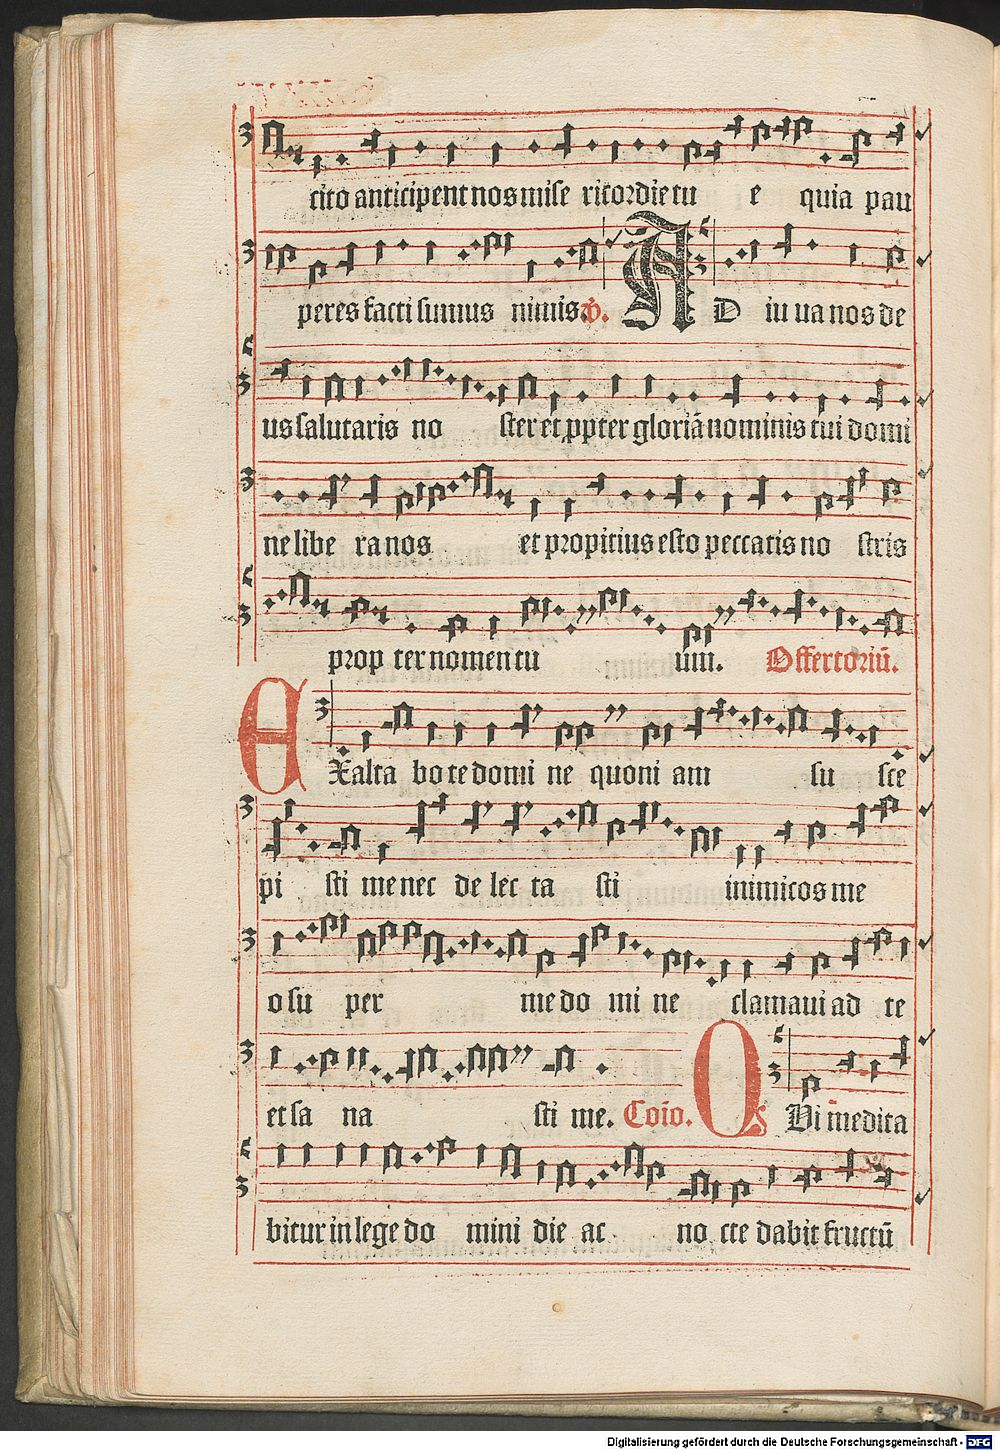 cito anticipent nos mise ricordie tu e quia pau
peres facti sumus nimis. ℣. AD iu va nos de
us salutaris no ster et ꝓpter gloriā nominis tui domi
ne libe ra nos et propicius esto peccatis no stris
prop ter nomen tu um. Offertoriū.
EXalta bo te domi ne quoni am su sce
pi sti me nec de lec ta sti inimicos me
o su per me do mi ne clamavi ad te
et sa na sti me. Cōio. OS Vi meditā
bitur in lege do mini die ac no cte dabit fructū
Digitalisierung gefördert durch die Deutsche Forschungsgemeinschaft - DFG